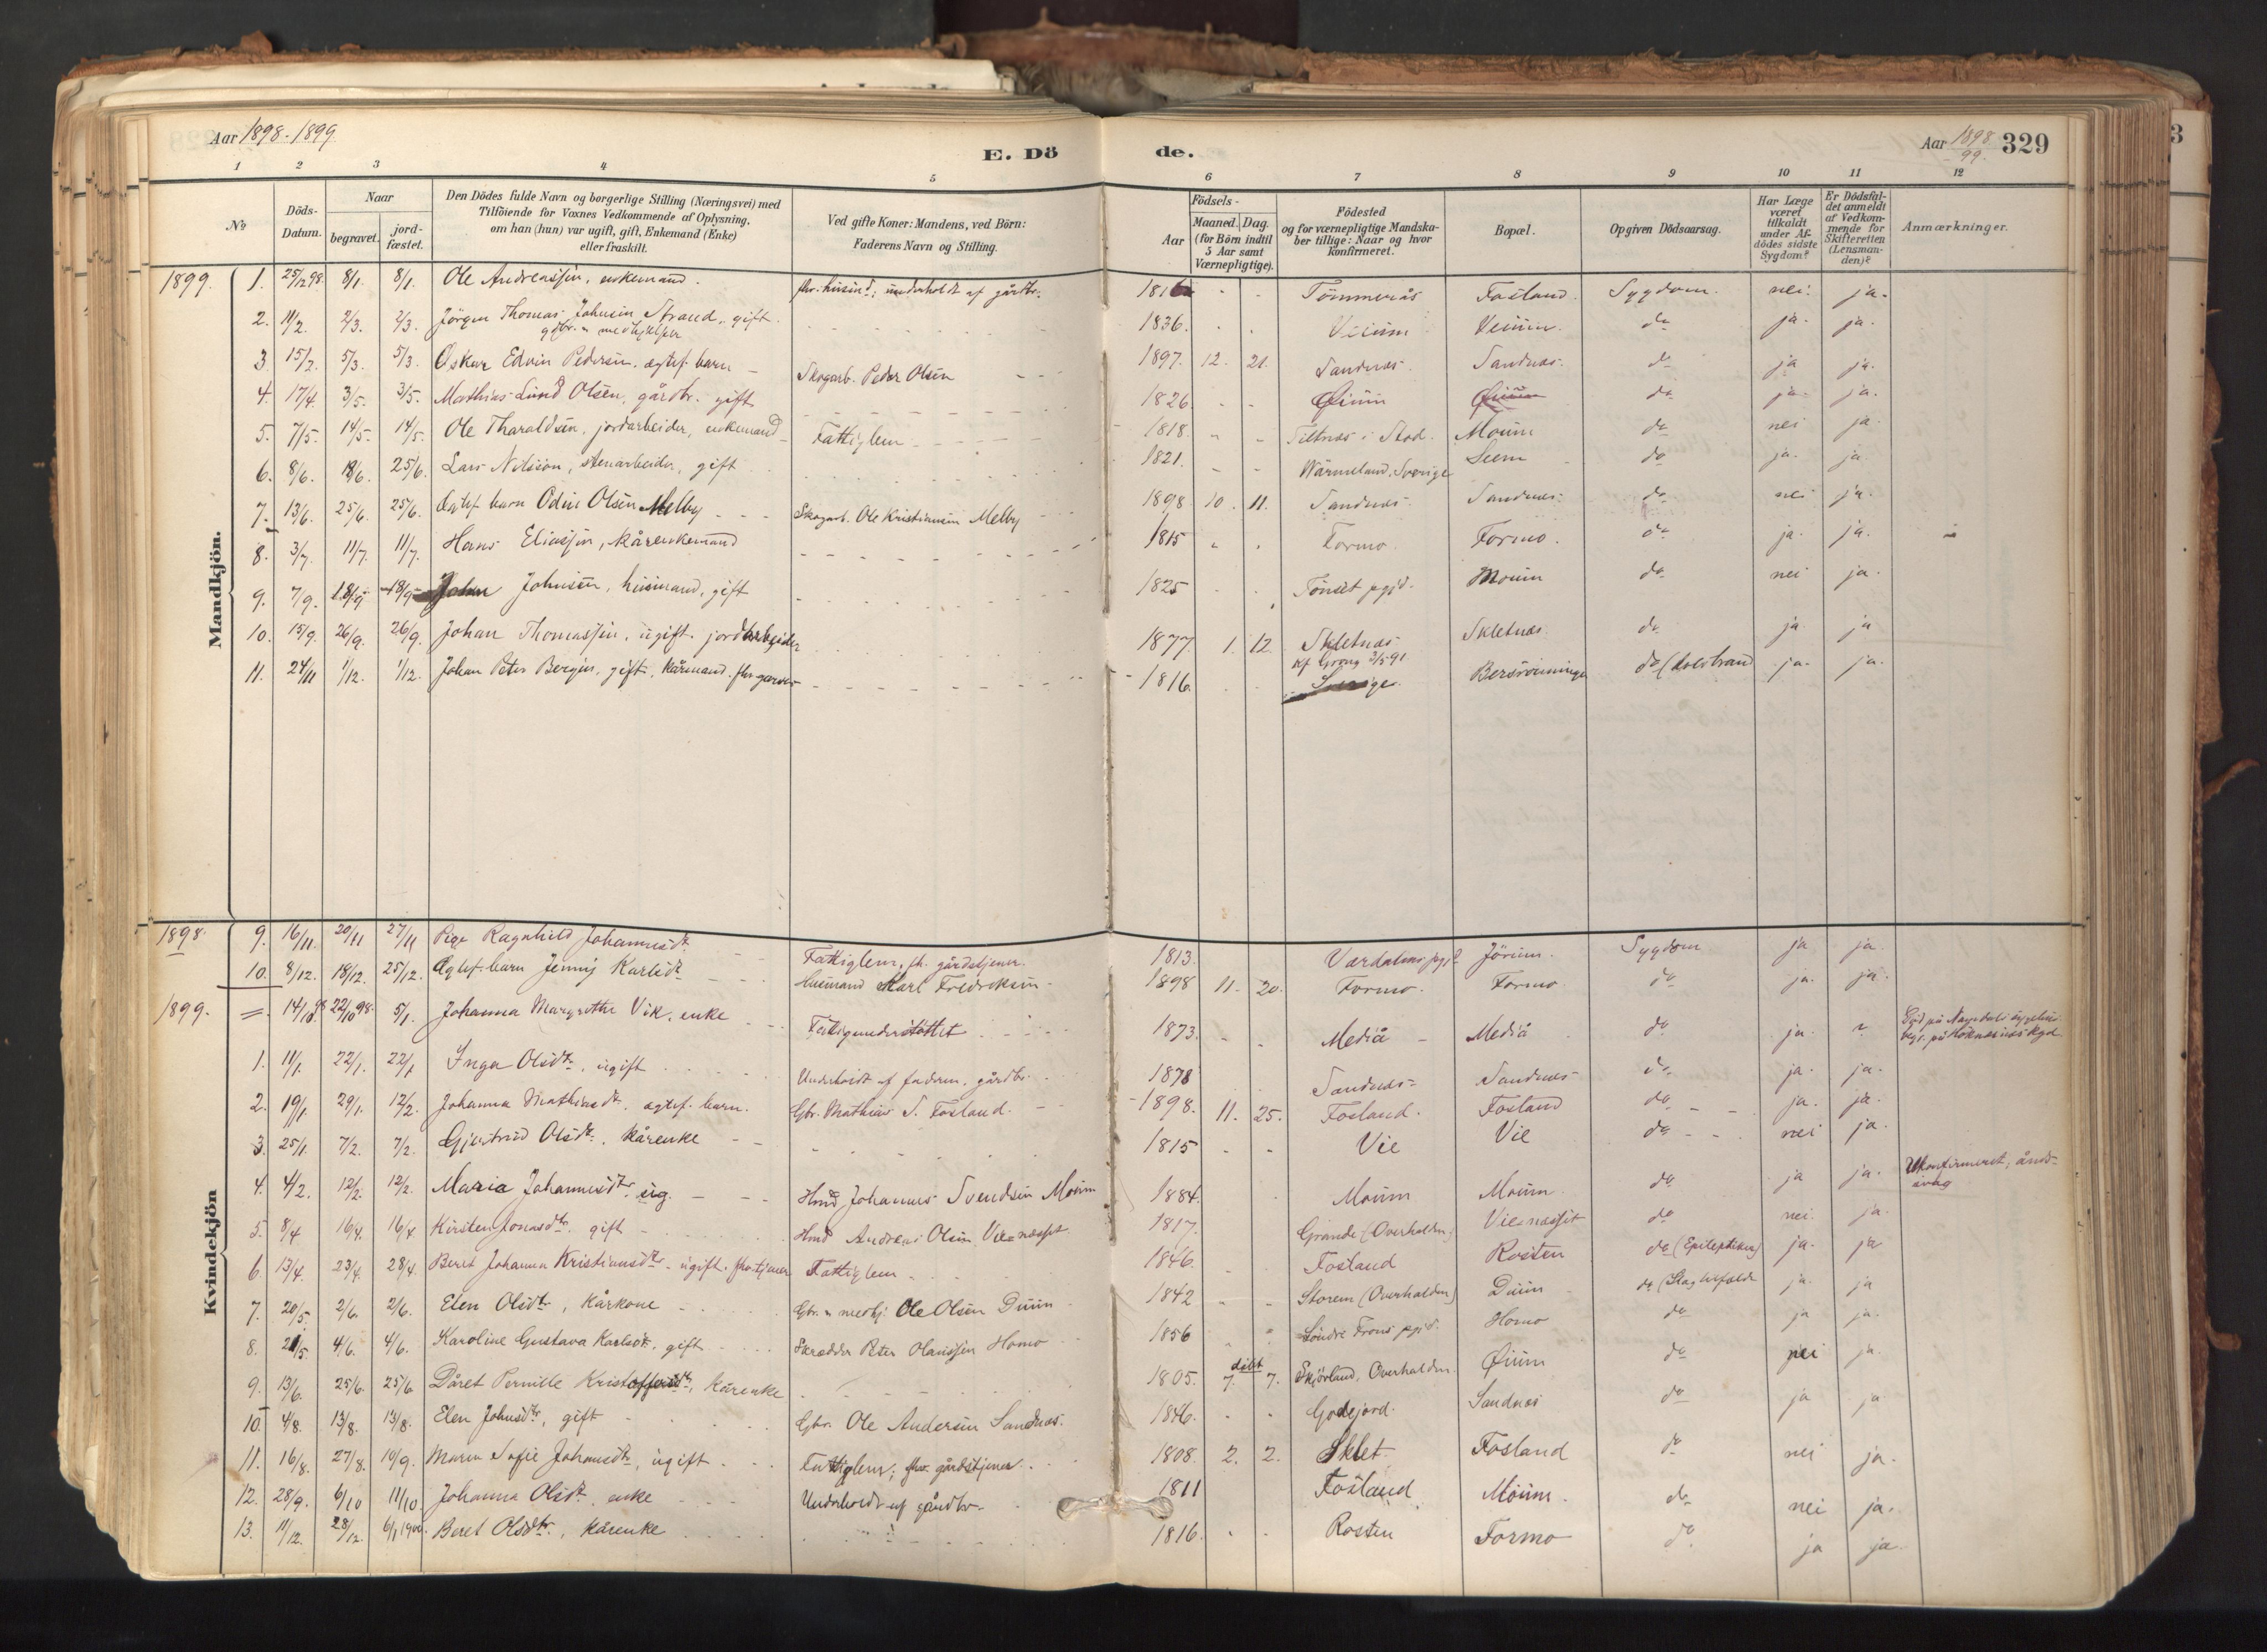 Aar 1898-1899.
E. Döde.
Aar 1898/99. 329
1 2 3 4 5 6 7 8 9 10 11 12
No
Döds-Datum.
Naar
begravet.
jord-fæstet.
Den Dödes fulde Navn og borgerlige Stilling (Næringsvei) med
Tilföiende for Voxnes Vedkommende af Oplysning,
om han (hun) var ugift, gift, Enkemand (Enke)
eller fraskilt.
Ved gifte Koner: Mandens, ved Börn:
Faderens Navn og Stilling.
Födsels-
Aar
Maaned. Dag.
(for Börn indtil
5 Aar samt
Værnepligtige).
Födested
og for værnepligtige Mandska-
ber tillige: Naar og hvor
konfirmeret.
Bopæl.
Opgiven Dödsaarsag.
Har Læge
været
tilkaldt
under Af-
dödes sidste
Sygdom?
Er Dödsfal-
det anmeldt
af Vedkom-
mende for
Skifteretten
(Lensman-
den)?
Anmærkninger.
Mandkjön.
1899. 1. 25/12 98. 8/1. 8/1. Ole Andreassen, enkemand. fhv. husmd; underholdt af gårdbr. 1816 Tömmerås Fosland. Sygdom. nei. ja.
2. 11/2. 2/3. 2/3. Jörgen Thomas Johnsen Strand, gift. 1836. Veium Veium. do ja. ja.
gbr. & medhjelper
3. 15/2. 5/3. 5/3. Oskar Edvin Pedersen, ægtef. barn Skogarb. Peder Olsen 1897. 12. 21. Sandnæs. Sandnæs. do ja ja.
4. 17/4. 3/5. 3/5. Mathias Lund Olsen, gårdbr. gift 1826. Øium Øium do ja. ja.
5. 7/5. 14/5. 14/5. Ole Tharaldsen, jordarbeider, enkemand Fattiglem 1818. Tiltnæs i Stod. Moum do nei ja.
6. 8/6. 18/6. 25/6. Lars Nilsson, stenarbeider, gift 1821. Wärmeland, Sverige Seem do ja. ja.
7. 13/6. 25/6. 25/6. Ægtef. barn Odin Olsen Melby Skogarb. Ole Kristiansen Melby 1898. 10. 11. Sandnæs. Sandnæs. do nei ja.
8. 3/7. 11/7. 11/7. Hans Eliassen, kårenkemand 1815 Formo. Formo. do ja. ja.
9. 7/9. 18/9 18/9 John Johnsen, husmand, gift 1825 Tönset pgjd. Moum do nei ja.
10. 15/9. 26/9. 26/9. Johan Thomassen, ugift. jordarbeider 1877 1. 12. Skletnæs Skletnæs. do ja. ja
kf Grong 3/5 91
11. 24/11 1/12. 1/12. Johan Peter Bergin, gift, kårmand. fhv garver 1816. Sverige. Bersvenninge do (koldbrand ja. ja.
Kvindekjön
1898. 9. 16/11. 20/11 27/11 Pige Ragnhild Johannesdt. Fattiglem, fh. gårdstjener. 1813. Værdalens pgjd Jörum. Sygdom ja ja.
10. 8/12. 18/12. 25/12. Ægtef. barn Jenny Karlsdt. Husmand Karl Fredriksen 1898 11. 20. Formo. Formo do ja. ja.
1899. =. 14/10 98. 22/10 98. 5/1. Johanna Margrethe Vik, enke Fattigunderstöttet 1873. Mediå Mediå do ja.
1. 11/1. 22/1. 22/1 Inga Olsdtr., ugift Underholdt af faderen, gårdbr. 1878 Sandnæs Sandnæs do ja. ja.
2. 19/1. 29/1. 12/2. Johanna Mathiasdt. ægtef. barn. Gbr. Mathias S. Fosland. 1898. 11. 25. Fosland. Fosland do ja. ja.
3. 25/1. 7/2. 7/2. Gjertrud Olsdtr., kårenke 1815 Vie Vie do nei ja.
4. 4/2. 12/2. 12/2. Maria Johannesdtr, ug. Hmd Johannes Svendsen Moum 1884. Moum Moum. do ja ja. Ukonfirmeret, ånds-
svag
5. 8/4 16/4. 16/4. Kirsten Jonasdtr. gift Hmd Andreas Olsen Vienæsset 1817. Grande (Overhalden) Vienæsset do nei. ja.
6. 13/4. 23/4. 28/4. Beret Johanna Kristiansdtr. ugift. fhv tjener Fattiglem 1846. Fosland Rosten do (Epileptiker) ja. ja
7. 20/5. 2/6. 2/6. Elen Olsdtr, kårkone Gbr. & medhj. Ole Olsen Duun 1842 Storem (Overhalden) Duun do (Slagtilfælde ja. ja
8. 21/5. 4/6. 4/6. Karoline Gustava Karlsdt., gift Skrædder Peter Olaussen Homo 1856 Söndre Frons pgjd. Homo do ja ja.
9. 13/6. 25/6. 25/6 Dåret Pernille Kristoffersdt., kårenke 1805. döbt 7. 7. Skjörland, Overhalden. Øium do nei ja.
10. 4/8. 13/8. 13/8. Elen Johnsdtr, gift Gbr. Ole Andersen Sandnæs. 1846. Godejord. Sandnæs do ja ja
11. 16/8. 27/8. 10/9. Maren Sofie Johansdtr, ugift Fattiglem; fhv. gårdstjener. 1808. 2. 2. Sklet Fosland do nei ja.
12. 28/9. 6/10 11/10 Johanna Olsdt. enke Underholdt af gårdbr. 1811 Fosland Moum. do nei ja.
13. 11/12. 28/12. 6/1 1900. Beret Olsdtr., kårenke 1816. Rosten Formo do ja ja.